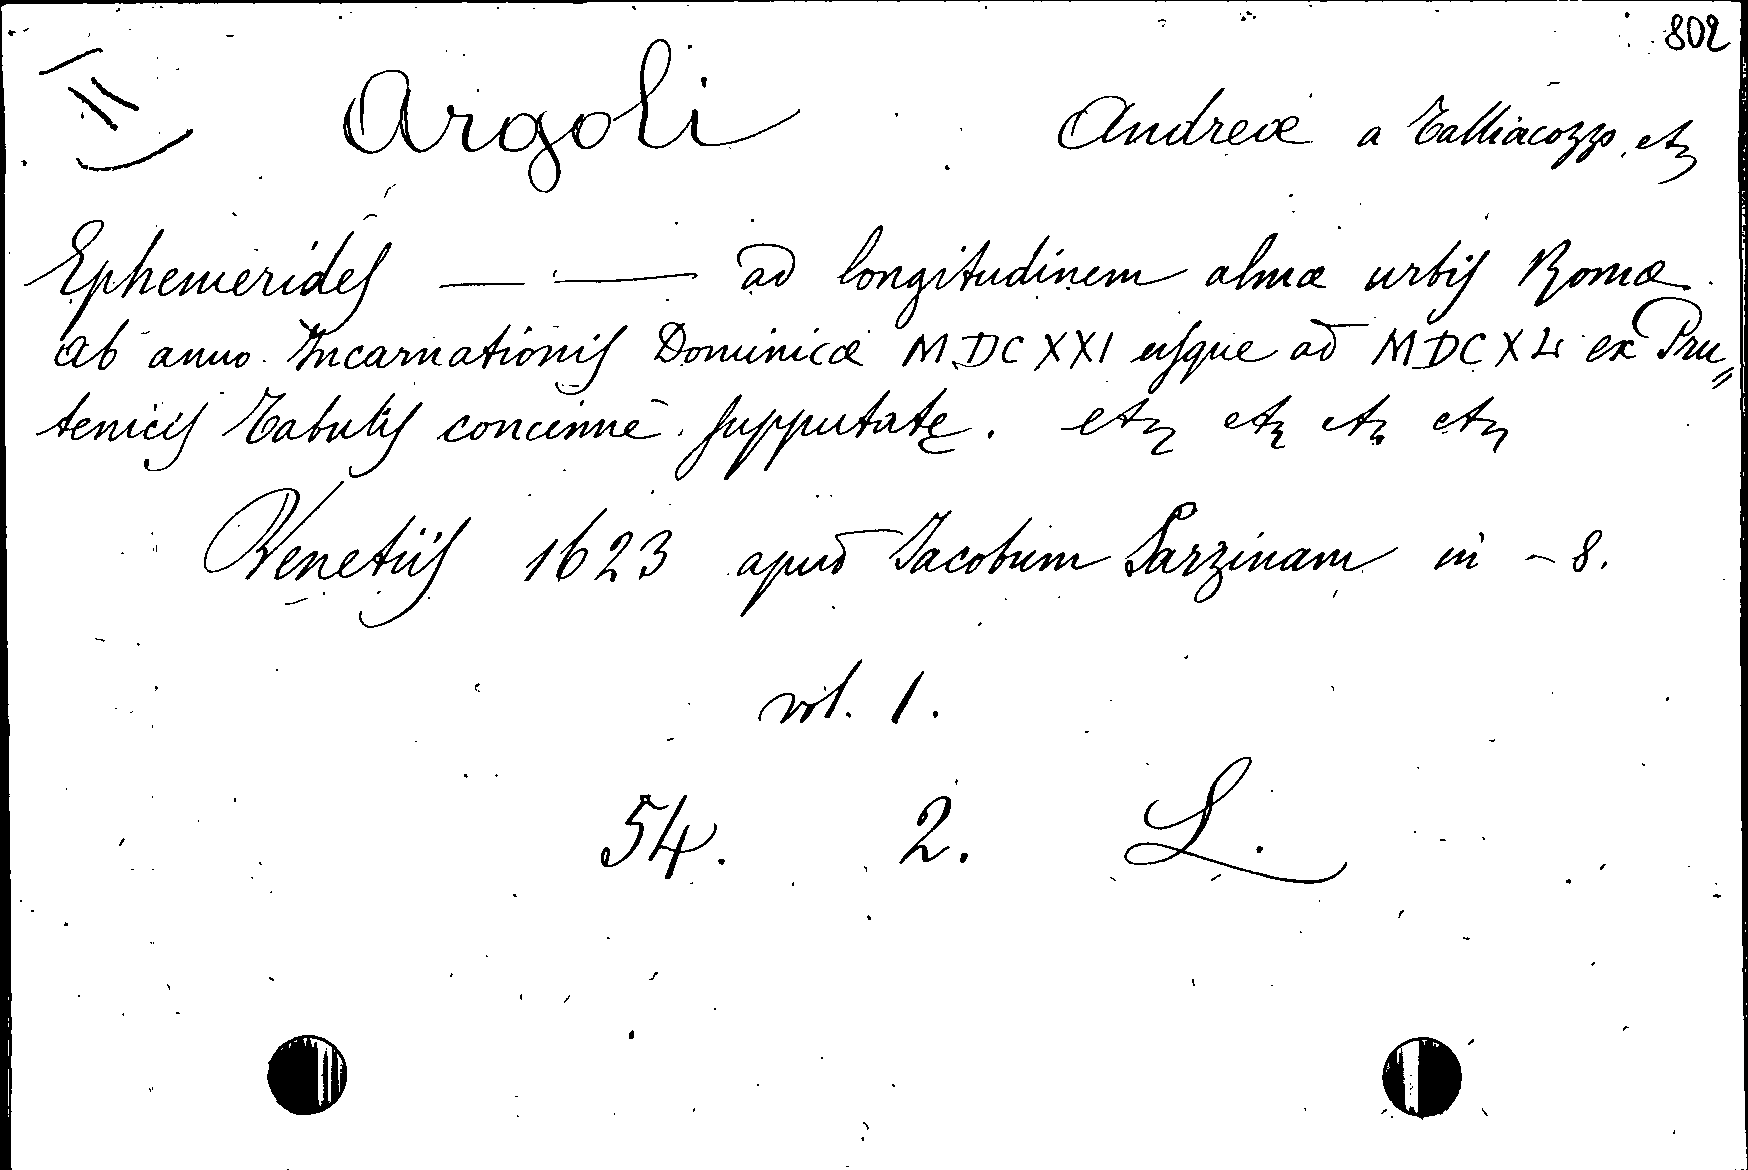 802
II Argoli Andreæ a Talliacozzo etz
Ephemerides — — ad longitudinem almæ urbis Romæ
ab anno Incarnationis Dominicæ MDCXXI usque ad MDCXL ex Pru„
tenicis Tabulis concinnè supputatę. etz etz etz etz
Venetiis 1623 apud Jacobum Sarzinam in - 8.
vol. 1.
54. 2. L.